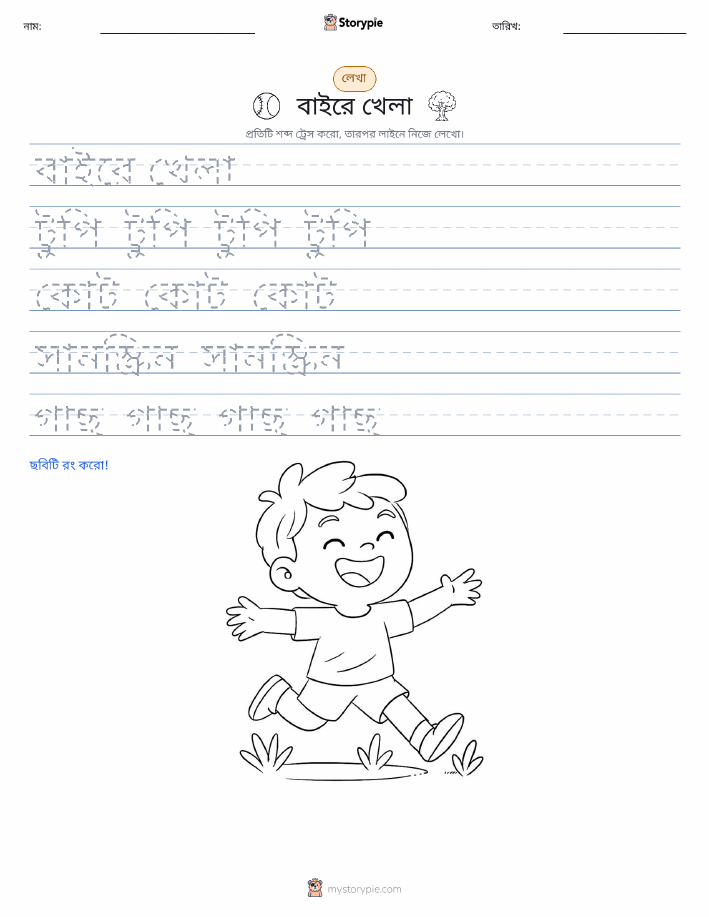 নাম:
Storypie
তারিখ:
লেখা
বাইরে খেলা
প্রতিটি শব্দ ট্রেস করো, তারপর লাইনে নিজে লেখো।
বাইরে খেলা
টুপি টুপি টুপি টুপি
কোট কোট কোট
সানস্ক্রিন সানস্ক্রিন
গাছ গাছ গাছ গাছ
ছবিটি রং করো!
mystorypie.com